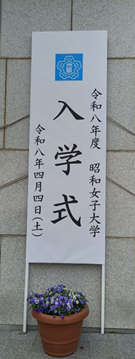 令和八年度 昭和女子大学
入学式
令和八年四月四日(土)